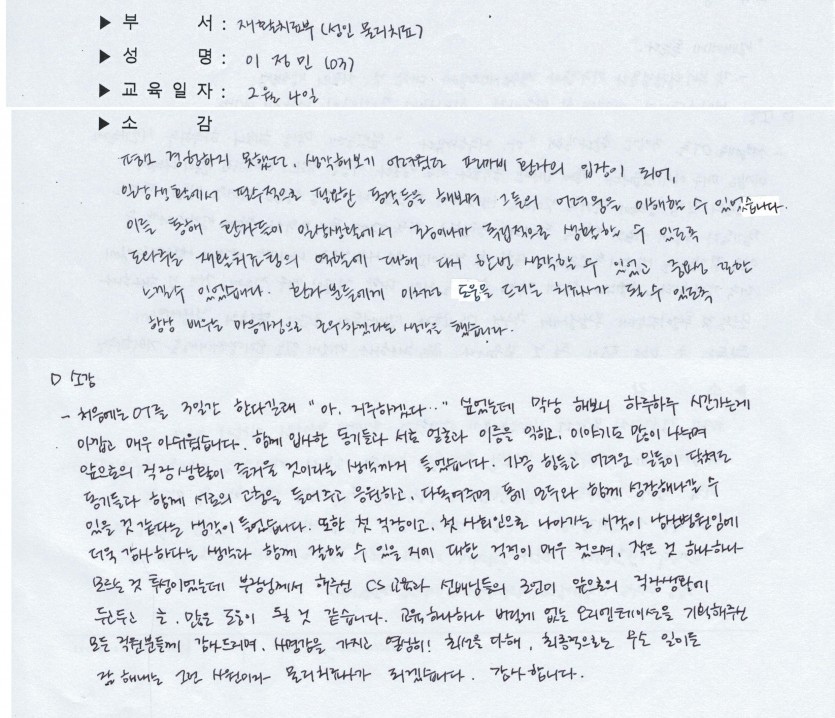 ▶ 부 서 : 재활치료부 (성인 물리치료)
▶ 성 명 : 이 정 민 (03)
▶ 교 육 일 자 : 2월 4일
▶ 소 감
평소 경험하지 못했던, 생각해보기 어려웠던 편마비 환자의 입장이 되어,
일상생활에서 필수적으로 필요한 동작들을 해보며 그들의 어려움을 이해할 수 있었습니다.
이를 통해 환자들이 일상생활에서 조금이나마 독립적으로 생활할 수 있도록
도와주는 재활치료팀의 역할에 대해 다시 한번 생각할 수 있었고 중요성 또한
느낄 수 있었습니다. 환자분들에게 이러한 도움을 드리는 치료사가 될 수 있도록
항상 배우는 마음가짐으로 근무하겠다는 생각을 했습니다.
D 소감
- 처음에는 OT를 3일간 한다길래 "아, 지루하겠다..." 싶었는데 막상 해보니 하루하루 시간가는게
아깝고 매우 아쉬웠습니다. 함께 입사한 동기들과 서로 얼굴과 이름을 익히고, 이야기도 많이 나누며
앞으로의 직장생활이 즐거울 것이라는 생각까지 들었습니다. 가끔 힘들고 어려운 일들이 닥쳐도
동기들과 함께 서로의 고충을 들어주고 응원하고, 다독여주며 동기 모두와 함께 성장해나갈 수
있을 것 같다는 생각이 들었습니다. 또한 첫 직장이고, 첫 사회인으로 나아가는 시작이 남산병원임에
더욱 감사하다는 생각과 함께 잘할 수 있을 지에 대한 걱정이 매우 컸으며, 작은 것 하나하나
모르는 것 투성이었는데 부장님께서 해주신 CS 교육과 선배님들의 조언이 앞으로의 직장생활에
두고두고 큰, 많은 도움이 될 것 같습니다. 교육 하나하나 버릴게 없는 오리엔테이션을 기획해주신
모든 직원분들께 감사드리며, 사명감을 가지고 열심히! 최선을 다해, 최종적으로는 무슨 일이든
잘 해내는 그런 사원이자 물리치료사가 되겠습니다. 감사합니다.